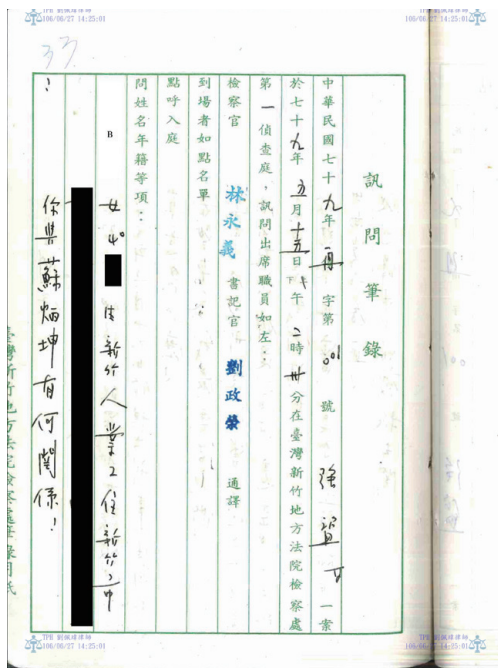 TPB 劉佩瑋律師
106/06/27 14:25:01
TPB 劉佩瑋律師
106/06/27 14:25:01
33
訊問筆錄
中華民國七十九年 再 字第 001 號 強盜 一案
於七十九年五月十五日下午二時卅分在臺灣新竹地方法院檢察處
第一偵查庭，訊問出席職員如左：
檢察官 林永義 書記官 劉政榮 通譯
到場者如點名單
點呼入庭
問姓名年籍等項：
B 女 40 生 新竹人 業工 住新竹市
你與蘇炳坤有何關係！
臺灣新竹地方法院檢察處 錄用紙
TPB 劉佩瑋律師
106/06/27 14:25:01
TPB 劉佩瑋律師
106/06/27 14:25:01